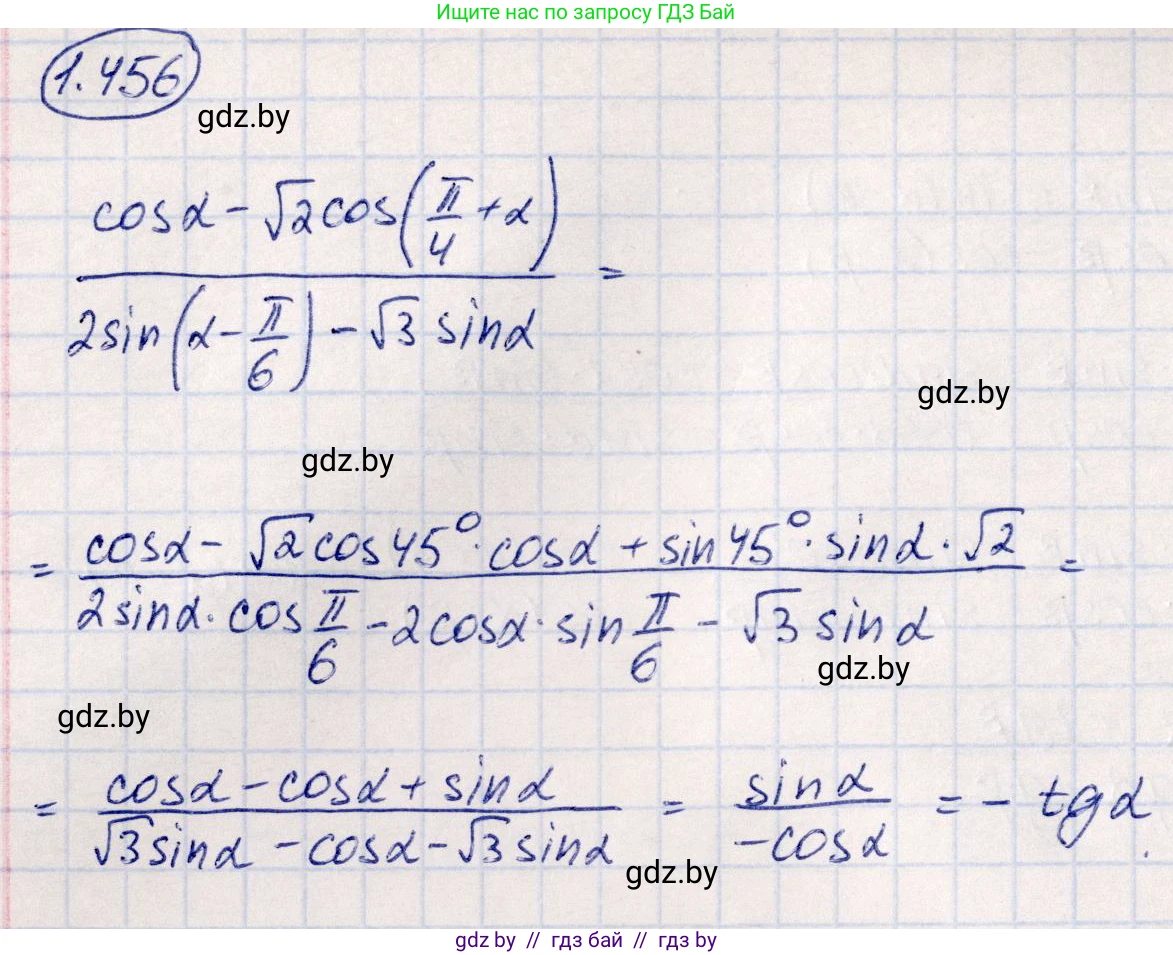 Ищите нас по запросу ГДЗ Бай
1.456
gdz.by
cosα - √2cos(π/4 + α)
/ 2sin(α - π/6) - √3 sinα =
gdz.by
gdz.by
= cosα - √2cos45°·cosα + sin45°·sinα·√2
/ 2sinα·cos π/6 - 2cosα·sin π/6 - √3 sinα =
gdz.by
gdz.by
= cosα - cosα + sinα / √3sinα - cosα - √3sinα = sinα / -cosα = - tgα.
gdz.by
gdz.by // гдз бай // гдз by